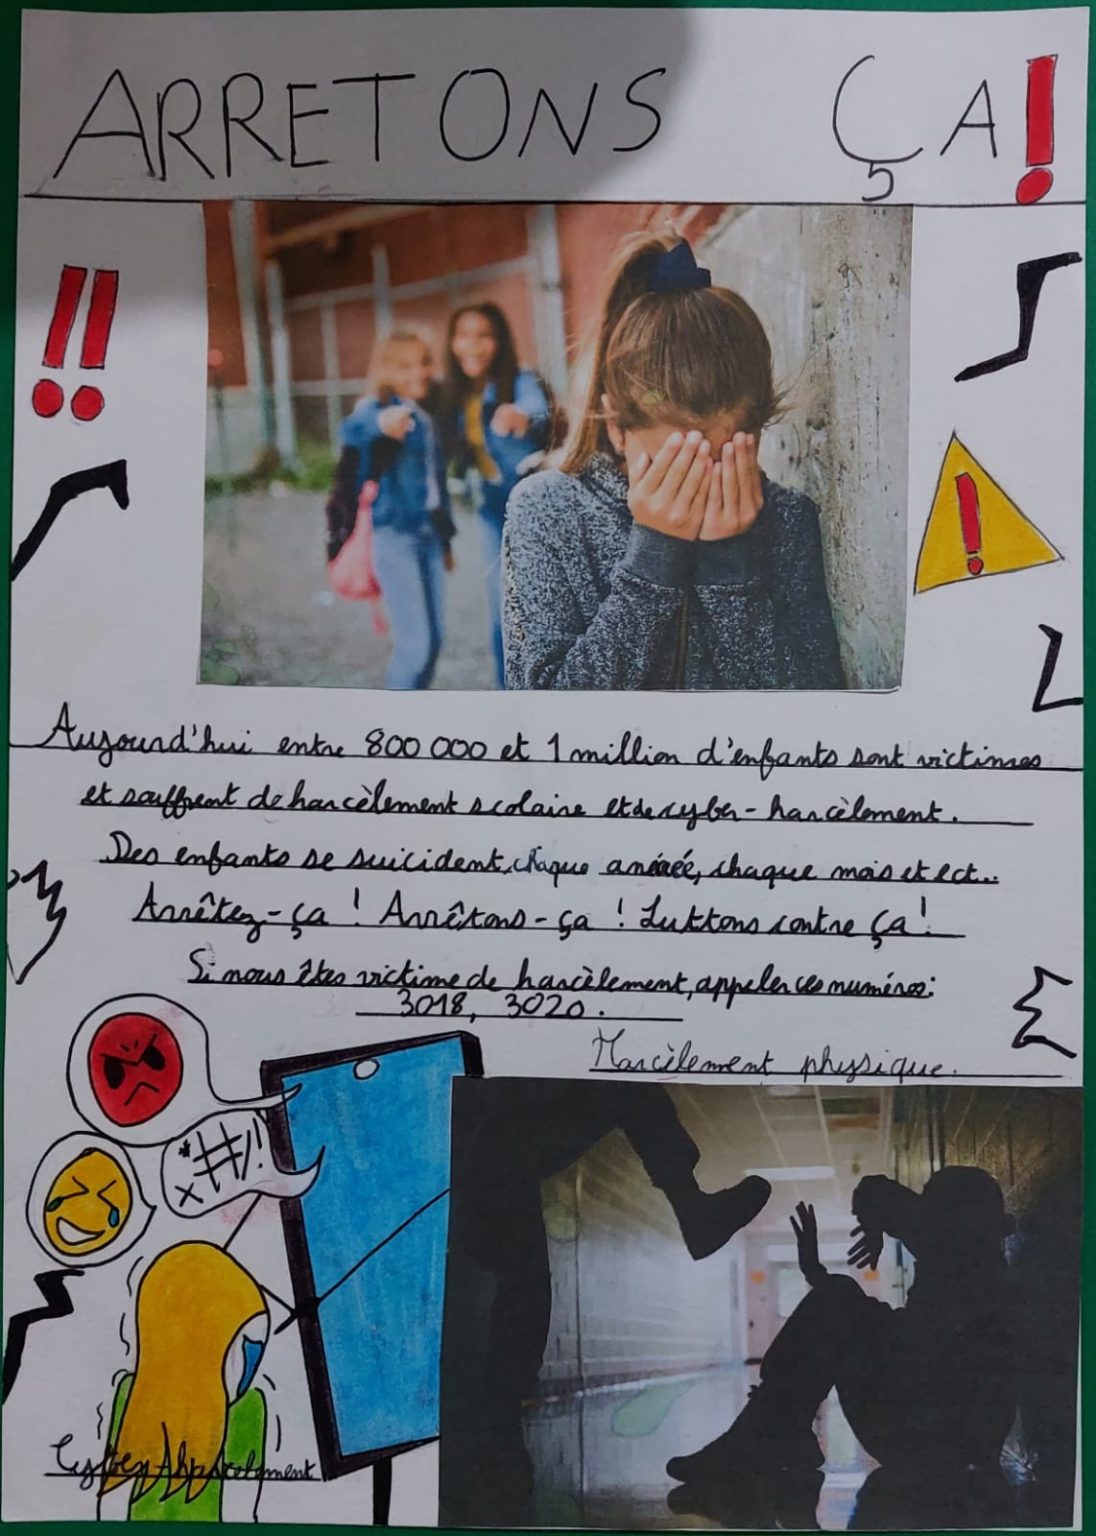 ARRETONS ÇA !
!!
!
Aujourd'hui entre 800 000 et 1 million d'enfants sont victimes
et souffrent de harcèlement scolaire et de cyber-harcèlement.
Des enfants se suicident, chaque année, chaque mois et ect..
Arrêtez-ça ! Arrêtons-ça ! Luttons contre ça !
Si nous êtes victime de harcèlement, appeler ces numéros:
3018, 3020.
Harcèlement physique.
*#/!
x
Cyber-harcèlement